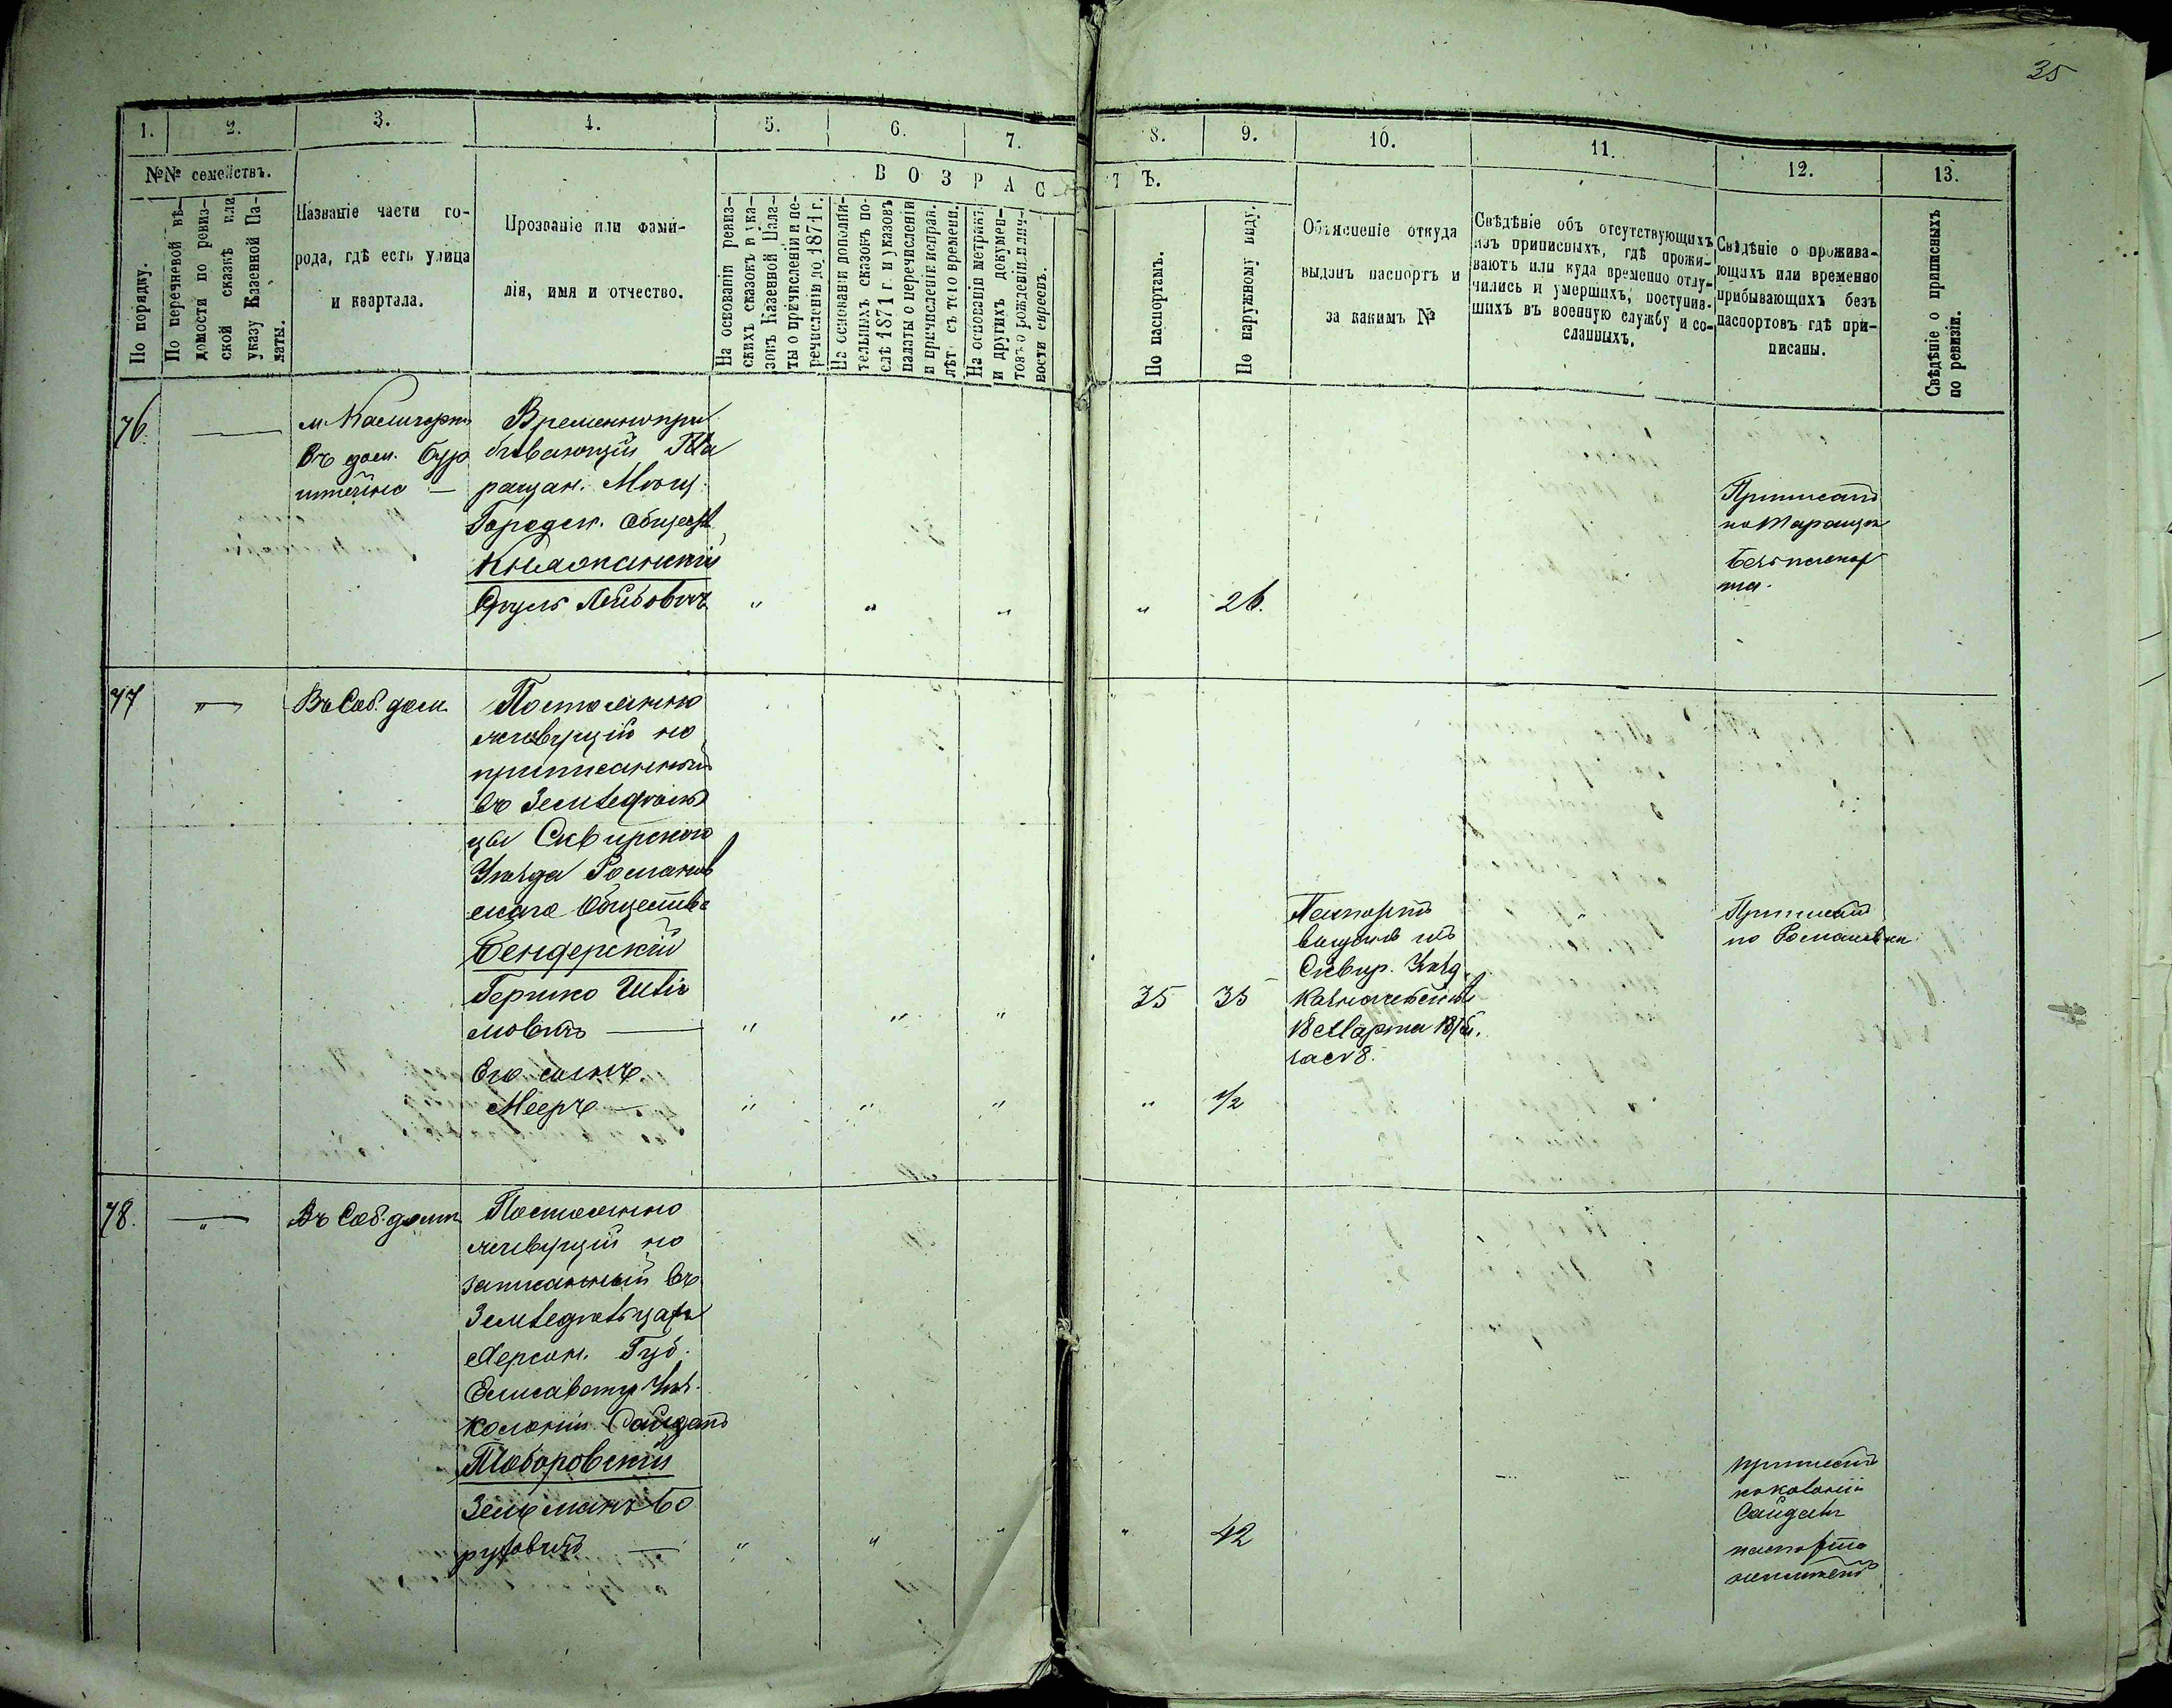 35
1. 2. 3. 4. 5. 6. 7. 8. 9. 10. 11. 12. 13.
№№ семействъ.
По порядку.
По перечневой вѣ-
домости по ревиз-
ской сказкѣ или
указу Казенной Па-
латы.
Названіе части го-
рода, гдѣ есть улица
и квартала.
Прозваніе или фами-
лія, имя и отчество.
ВОЗРАСТЪ.
На основаніи ревиз-
скихъ сказокъ и ука-
зовъ Казенной Пала-
ты о причисленіи и пе-
речисленіи до 1871 г.
На основаніи дополни-
тельныхъ сказокъ по-
слѣ 1871 г. и указовъ
палаты о перечисленіи
и причисленіе исправ.
лѣт съ того времени.
На основаніи метрикъ
и другихъ докумен-
товъ о рожденіи и лич-
ности евреевъ.
По паспортамъ.
По наружному виду.
Объясненіе откуда
выданъ паспортъ и
за какимъ №
Свѣдѣніе объ отсутствующихъ
изъ приписныхъ, гдѣ прожи-
ваютъ или куда временно отлу-
чились и умершихъ, поступив-
шихъ въ военную службу и со-
сланныхъ.
Свѣдѣніе о прожива-
ющихъ или временно
прибывающихъ безъ
паспортовъ гдѣ при-
писаны.
Свѣдѣніе о приписныхъ
по ревизіи.
76.
Въ дом.
Временно при
бывающій Та
ращан. Мѣщ.
Городск. Обществ.
Княжанскій
Сруль Лейбовичъ " " " " 26.
Приписанъ
по Таращѣ
безъ паспор
та.
77 " Въ Соб. дом.
Постоянно
живущій но
приписанный
въ Земледѣль
цы Сквирского
Уѣзда Романов
скаго Общества
Бендерскій
Гершко Шлiо
мовичъ " " " 35 35
Его сынъ
Мееръ " " " " 1/2
Паспортъ
выданъ изъ
Сквир. Уѣзд.
Казначейства
18 Марта
Приписанъ
по Романовки
78. " Въ Соб. домѣ
Постоянно
живущій но
записанный въ
Земледѣльцахъ
Херсон. Губ.
Елисаветгр. Уѣз.
колоніи Сайдакъ
Таборовскій
Зельманъ Бо
руховичъ " " " " 42
приписанъ
по колоніи
Сайдакъ
паспорта